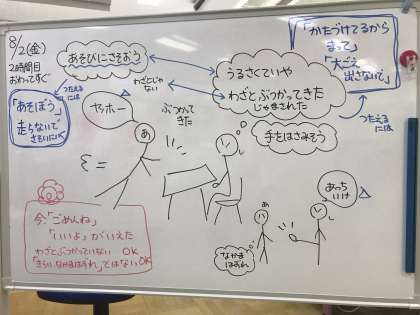 8/2(金)
2時間目
おわってすぐ
あそびにさそおう
わざとじゃない
うるさくていや
わざとぶつかってきた
じゃまされた
「かたづけてるから
まって」
「大ごえ
出さないで」
つたえる
には
つたえる
には
「あそぼう」
走らないで
さそいにOK
ヤッホー
ぶつかって
きた
あ
し
手をはさみそう
あっち
いけ
あ
し
なかま
はずれ
今、「ごめんね」
「いいよ」がいえた
わざとぶつかっていない OK
「きらい、なかまはずれ」ではない OK